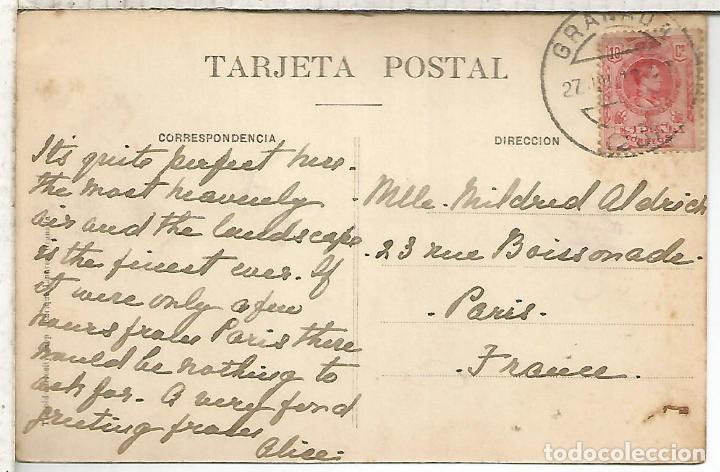 GRANADA
27
10 Cs
TARJETA POSTAL
CORRESPONDENCIA
DIRECCION
It's quite perfect here.
the most heavenly
air and the landscape
is the finest ever. If
it were only a few
hours from Paris there
would be nothing to
ask for. A very fond
greeting from
Alice.
Mlle. Mildred Aldrich
23 rue Boissonade.
Paris.
France.
todocoleccion